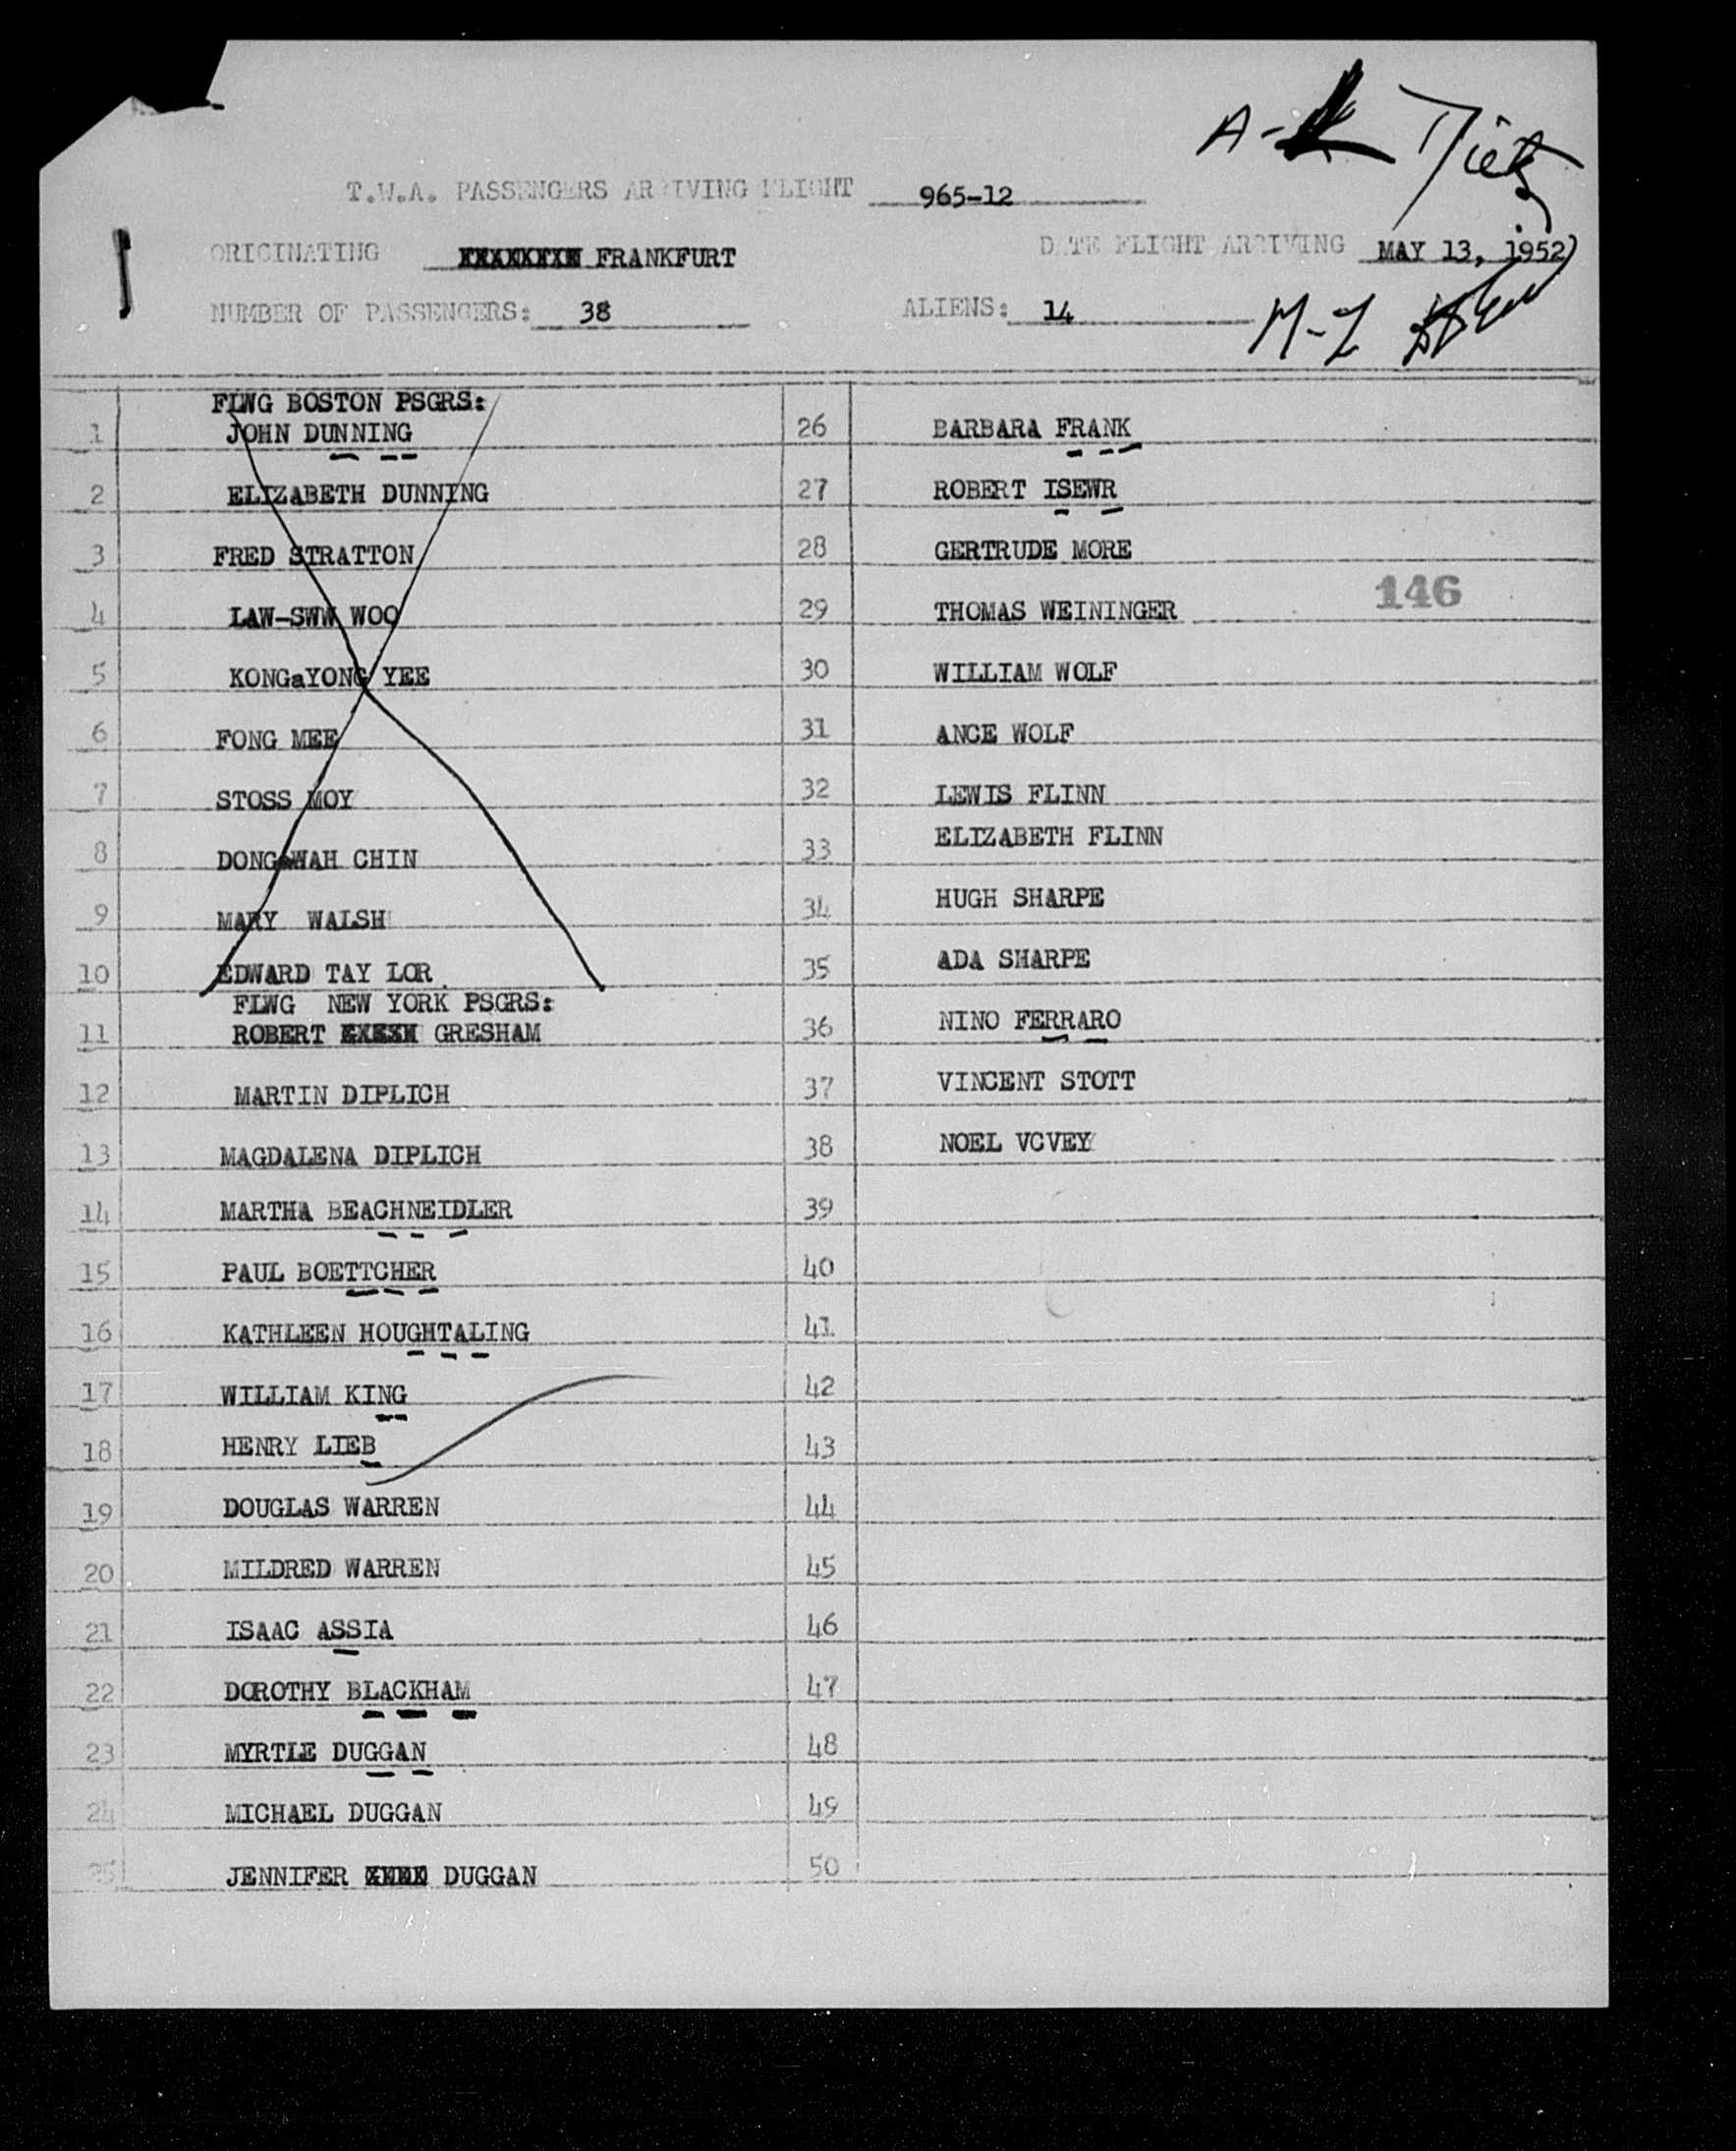 A-
T.W.A. PASSENGERS ARRIVING FLIGHT 965-12
ORIGINATING FRANKFURT DATE FLIGHT ARRIVING MAY 13, 1952
NUMBER OF PASSENGERS: 38 ALIENS: 14
M-Z
FLWG BOSTON PSGRS:
1 JOHN DUNNING
2 ELIZABETH DUNNING
3 FRED STRATTON
4 LAW-SWW WOO
5 KONGaYONG YEE
6 FONG MEE
7 STOSS MOY
8 DONGaWAH CHIN
9 MARY WALSH
10 EDWARD TAY LOR
FLWG NEW YORK PSGRS:
11 ROBERT GRESHAM
12 MARTIN DIPLICH
13 MAGDALENA DIPLICH
14 MARTHA BEACHNEIDLER
15 PAUL BOETTCHER
16 KATHLEEN HOUGHTALING
17 WILLIAM KING
18 HENRY LIEB
19 DOUGLAS WARREN
20 MILDRED WARREN
21 ISAAC ASSIA
22 DOROTHY BLACKHAM
23 MYRTLE DUGGAN
24 MICHAEL DUGGAN
25 JENNIFER DUGGAN
26 BARBARA FRANK
27 ROBERT ISEWR
28 GERTRUDE MORE
146
29 THOMAS WEININGER
30 WILLIAM WOLF
31 ANCE WOLF
32 LEWIS FLINN
33 ELIZABETH FLINN
34 HUGH SHARPE
35 ADA SHARPE
36 NINO FERRARO
37 VINCENT STOTT
38 NOEL VCVEY
39
40
41
42
43
44
45
46
47
48
49
50